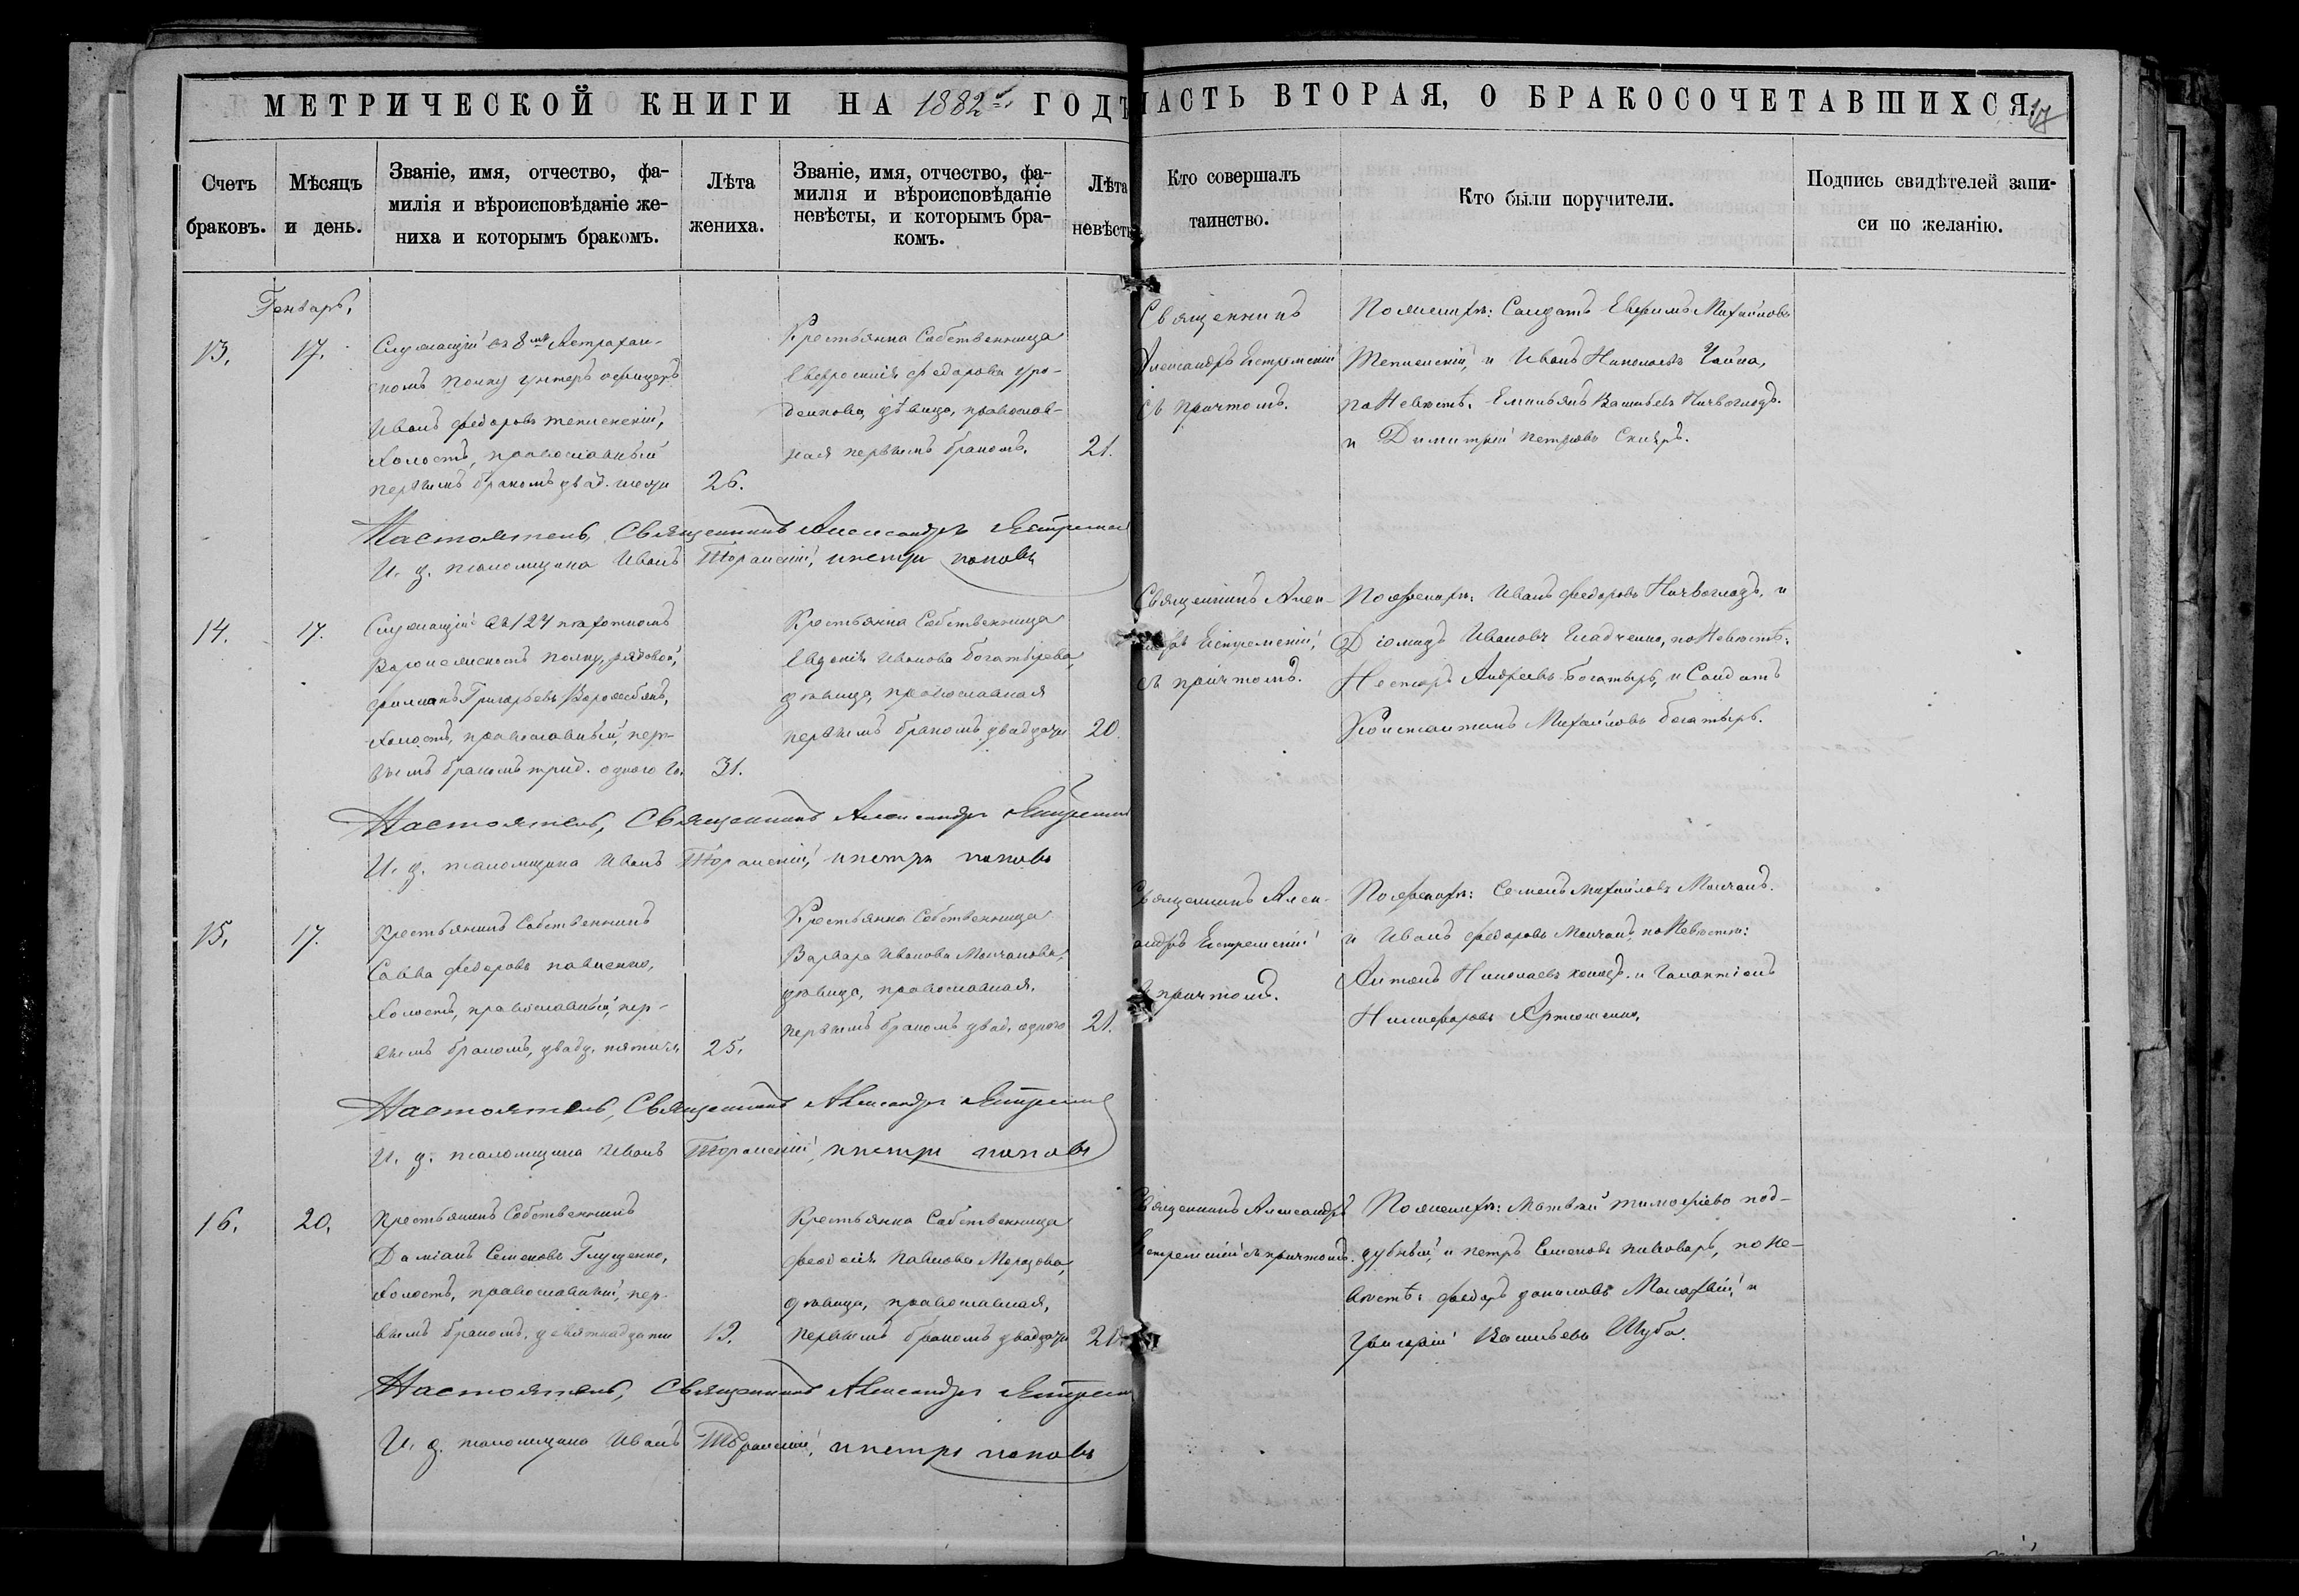 МЕТРИЧЕСКОЙ КНИГИ НА 1882й ГОДЪ
Счетъ браковъ.
Мѣсяцъ и день.
Званіе, имя, отчество, фа-
милія и вѣроисповѣданіе же-
ниха и которымъ бракомъ.
Лѣта
жениха.
Званіе, имя, отчество, фа-
милія и вѣроисповѣданіе
невѣсты, и которымъ бра-
комъ.
Лѣта
невѣсты
Генварь.
13.
17.
Служащій въ 8мъ Астрахан-
скомъ полку унтеръ офицеръ
Иванъ Федоровъ
холостъ, православный
первымъ бракомъ двад. шести
26.
Крестьянка Собственница
Евфросинія Федорова
дѣвица, православ-
ная первымъ бракомъ,
21.
Настоятель, Священникъ Александръ
И. д. псаломщика Иванъ и Петръ Поповъ
14.
17.
Служащій въ 124 пѣхотномъ
полку, рядовой,
Григорьевъ
холостъ, православный, пер-
вымъ бракомъ трид. одного го.
31.
Крестьянка Собственница
Евдокія Иванова Богатырева,
дѣвица, православная
первымъ бракомъ двадцати
20.
Настоятель, Священникъ Александръ
И. д. псаломщика Иванъ и Петръ Поповъ
15.
17.
Крестьянинъ Собственникъ
Савва Федоровъ Павленко,
холостъ, православный, пер-
вымъ бракомъ, двадц. пяти
25.
Крестьянка Собственница
Варвара Иванова Молчанова,
дѣвица, православная,
первымъ бракомъ двад. одного
21.
Настоятель, Священникъ Александръ
И. д. псаломщика Иванъ и Петръ Поповъ
16.
20.
Крестьянинъ Собственникъ
Даміанъ Семеновъ Глущенко,
холостъ, православный, пер-
вымъ бракомъ, девятнадцати
19.
Крестьянка Собственница
Феодосія Павлова Морозова,
дѣвица, православная,
первымъ бракомъ двадцати
Настоятель, Священникъ Александръ
И. д. псаломщика Иванъ и Петръ Поповъ
ЧАСТЬ ВТОРАЯ, О БРАКОСОЧЕТАВШИХСЯ.
Кто совершалъ
таинство.
Кто были поручители.
Подпись свидѣтелей запи-
си по желанію.
Священникъ
Александръ
съ причтомъ.
По женихѣ: Солдатъ Михайловъ
и Иванъ Николаевъ Чайка,
по Невѣстѣ: Емиліанъ Васильевъ
и Димитрій Петровъ Скляръ.
Священникъ Алек-
съ причтомъ.
По женихѣ: Иванъ Федоровъ и
Діомидъ Ивановъ Гладченко, по Невѣстѣ:
Несторъ Андреевъ Богатырь, и Солдатъ
Константинъ Михайловъ Богатырь.
Священникъ Алек-
сандръ
съ причтомъ.
По женихѣ: Семенъ Михайловъ Молчанъ.
и Иванъ Федоровъ Молчанъ, по Невѣстѣ:
Антонъ Николаевъ и Галактіонъ
Никифоровъ Артюшенко,
Священникъ Александръ
съ причтомъ.
По женихѣ: Матвѣй Тимофѣевъ Под-
дубный, и Петръ Семеновъ Пивоваръ, по Не-
вѣстѣ: Федоръ и
Григорій Васильевъ Шуба.